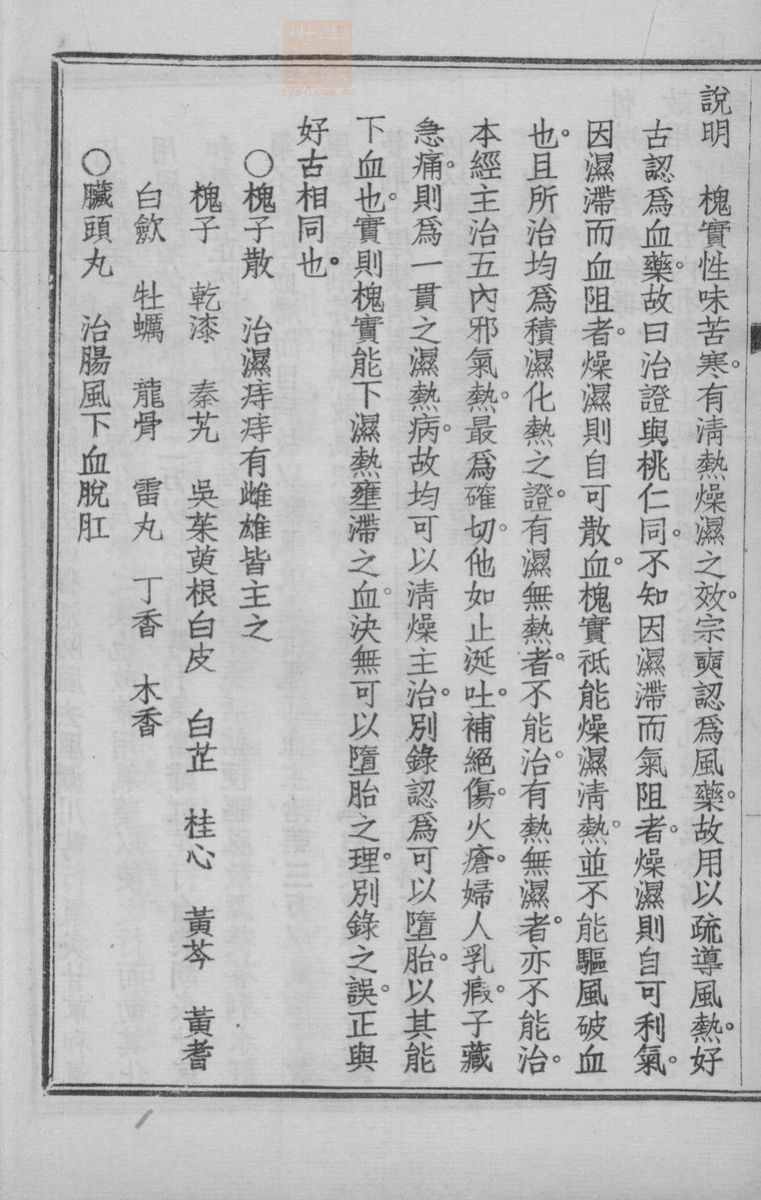 說明　槐實性味苦寒。有淸熱燥濕之效。宗奭認爲風藥。故用以疏導風熱。好
古認爲血藥。故曰治證與桃仁同。不知因濕滯而氣阻者。燥濕則自可利氣。
因濕滯而血阻者。燥濕則自可散血。槐實祇能燥濕淸熱。並不能驅風破血
也。且所治均爲積濕化熱之證。有濕無熱者。不能治。有熱無濕者。亦不能治。
本經主治五內邪氣熱。最爲確切。他如止涎吐。補絕傷。火瘡。婦人乳瘕。子藏
急痛。則爲一貫之濕熱病。故均可以淸燥主治。別錄認爲可以墮胎。以其能
下血也。實則槐實能下濕熱壅滯之血。決無可以墮胎之理。別錄之誤。正與
好古相同也。
○槐子散　治濕痔痔有雌雄皆主之
槐子　乾漆　秦艽　吳茱萸根白皮　白芷　桂心　黃芩　黃耆
白歛　牡蠣　龍骨　雷丸　丁香　木香
○臟頭丸　治腸風下血脫肛